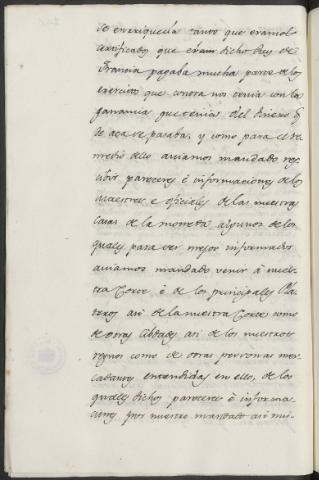 se enriquecia tanto que eramos
certificados que el dicho Rey de
Francia pagaba mucha parte de los
exercitos que contra nos tenia con la
ganancia que tenia del dinero q
de aca se pasaba, y como para el re-
medio dello aviamos mandado res-
cibir pareceres è informaciones de los
maestros è oficiales de las nuestras
casas de la moneda algunos de los
quales para ser mejor informados
aviamos mandado venir à nues-
tra Corte è de los principales Pla-
teros asi de la nuestra Corte como
de otras Cibdades asi de los nuestros
reynos como de otras personas mer-
cadores entendidas en ello, de los
quales dichos pareceres è informa-
ciones por nuestro mandado asi mis-